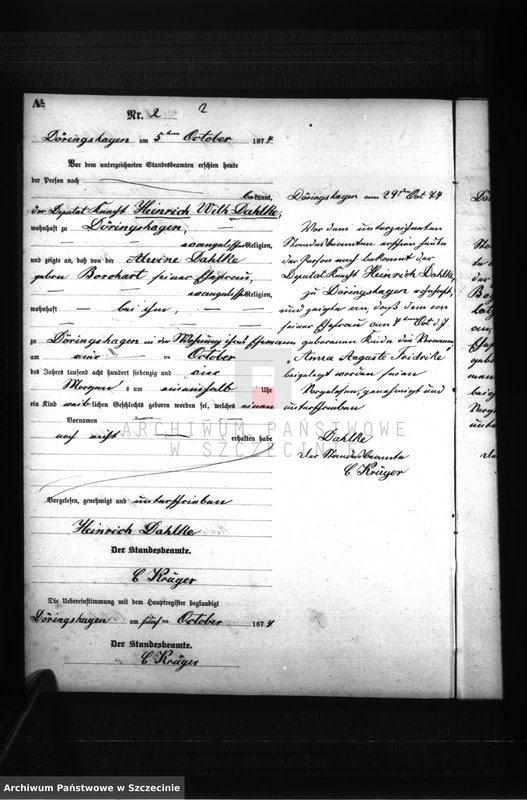 A.
Nr. 2
2
Döringshagen am 5ten October 1874
Vor dem unterzeichneten Standesbeamten erschien heute
der Person nach
bekannt,
der Deputat Knecht Heinrich Wilh Dahlke,
wohnhaft zu Döringshagen,
evangelischer Religion,
und zeigte an, daß von der Alwine Dahlke
geboren Borchart seiner Ehefrau,
evangelischer Religion,
wohnhaft bei ihm,
zu Döringshagen in der Wohnung ihres Ehemannes
am vier October
des Jahres tausend acht hundert siebenzig und vier
Morgens um Uhr
ein Kind weiblichen Geschlechts geboren worden sei, welches einen
Vornamen
noch nicht erhalten habe
Vorgelesen, genehmigt und unterschrieben
Heinrich Dahlke
Der Standesbeamte.
C Krüger
Die Uebereinstimmung mit dem Hauptregister beglaubigt
Döringshagen am fünften October 1874
Der Standesbeamte.
C Krüger
Döringshagen am 29ten Oct 74
Vor dem unterzeichneten
Standesbeamten erschien heute
der Person nach bekannt der
Deputat Knecht Heinrich Dahlke,
zu Döringshagen wohnhaft,
und zeigte an, daß dem von
seiner Ehefrau am 4ten Oct d. J.
geborenen Kinde die Vornamen
Anna Auguste Fridrike
beigelegt worden seien
Vorgelesen, genehmigt und
unterschrieben
Dahlke
der Standesbeamte
C Krüger
ARCHIWUM PAŃSTWOWE
W SZCZECINIE
Archiwum Państwowe w Szczecinie